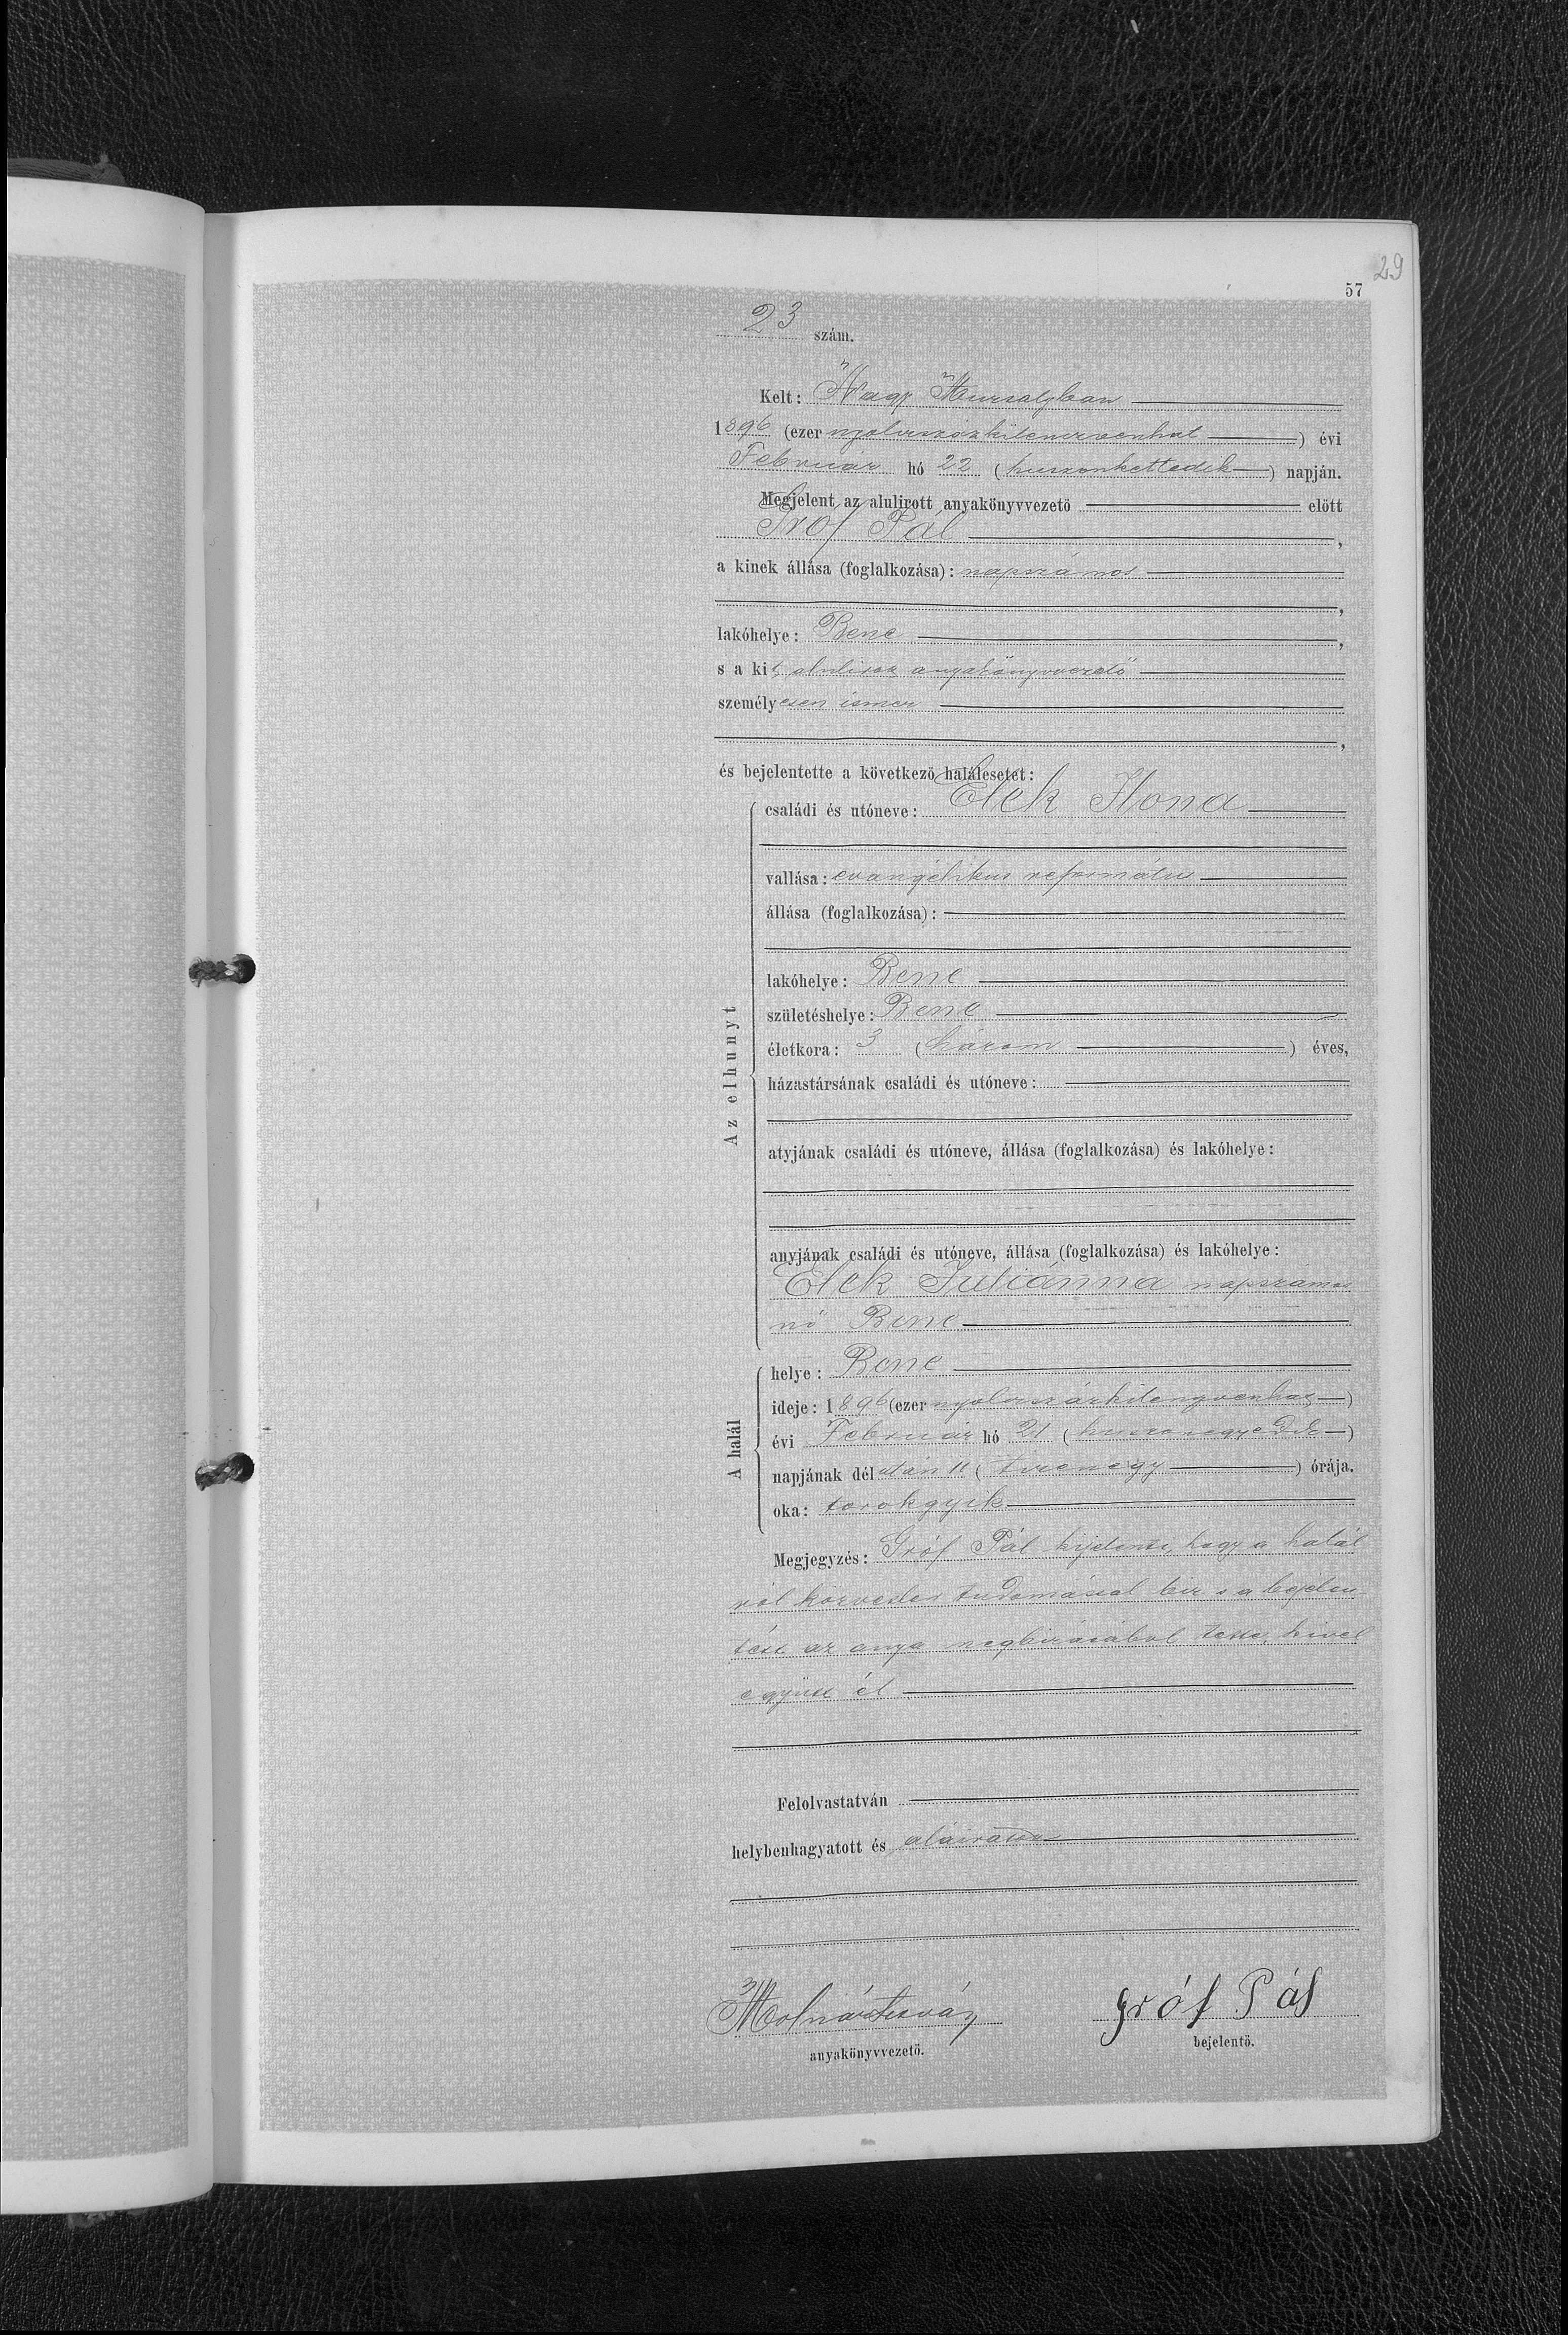 29
57
23 szám.
Kelt: Nagy Muzsalyban
1896 (ezer nyolczszázkilenczvenhat) évi
Február hó 22 (huszonkettedik) napján.
Megjelent az alulirott anyakönyvvezető előtt
Gróf Pál,
a kinek állása (foglalkozása): napszámos
,
lakóhelye: Bene,
s a kit alulirott anyakönyvvezető
személyesen ismer
,
és bejelentette a következő halálesetet:
Az elhunyt
családi és utóneve: Elek Ilona
vallása: evangélikus református
állása (foglalkozása):
lakóhelye: Bene
születéshelye: Bene
életkora: 3 (három) éves,
házastársának családi és utóneve:
atyjának családi és utóneve, állása (foglalkozása) és lakóhelye:
anyjának családi és utóneve, állása (foglalkozása) és lakóhelye:
Elek Juliánna napszámos
nő Bene
A halál
helye: Bene
ideje: 1896 (ezer nyolczszázkilenczvenhat)
évi Február hó 21 (huszonegyedik)
napjának délután 11 (tizenegy) órája.
oka: torokgyik
Megjegyzés: Gróf Pál kijelenti, hogy a halál
ról közvetlen tudomással bir s a bejelen
tést az anya megbizásából teszi, kivel
együtt él
Felolvastatván
helybenhagyatott és aláiratott
Molnár István
anyakönyvvezető.
Gróf Pál
bejelentő.